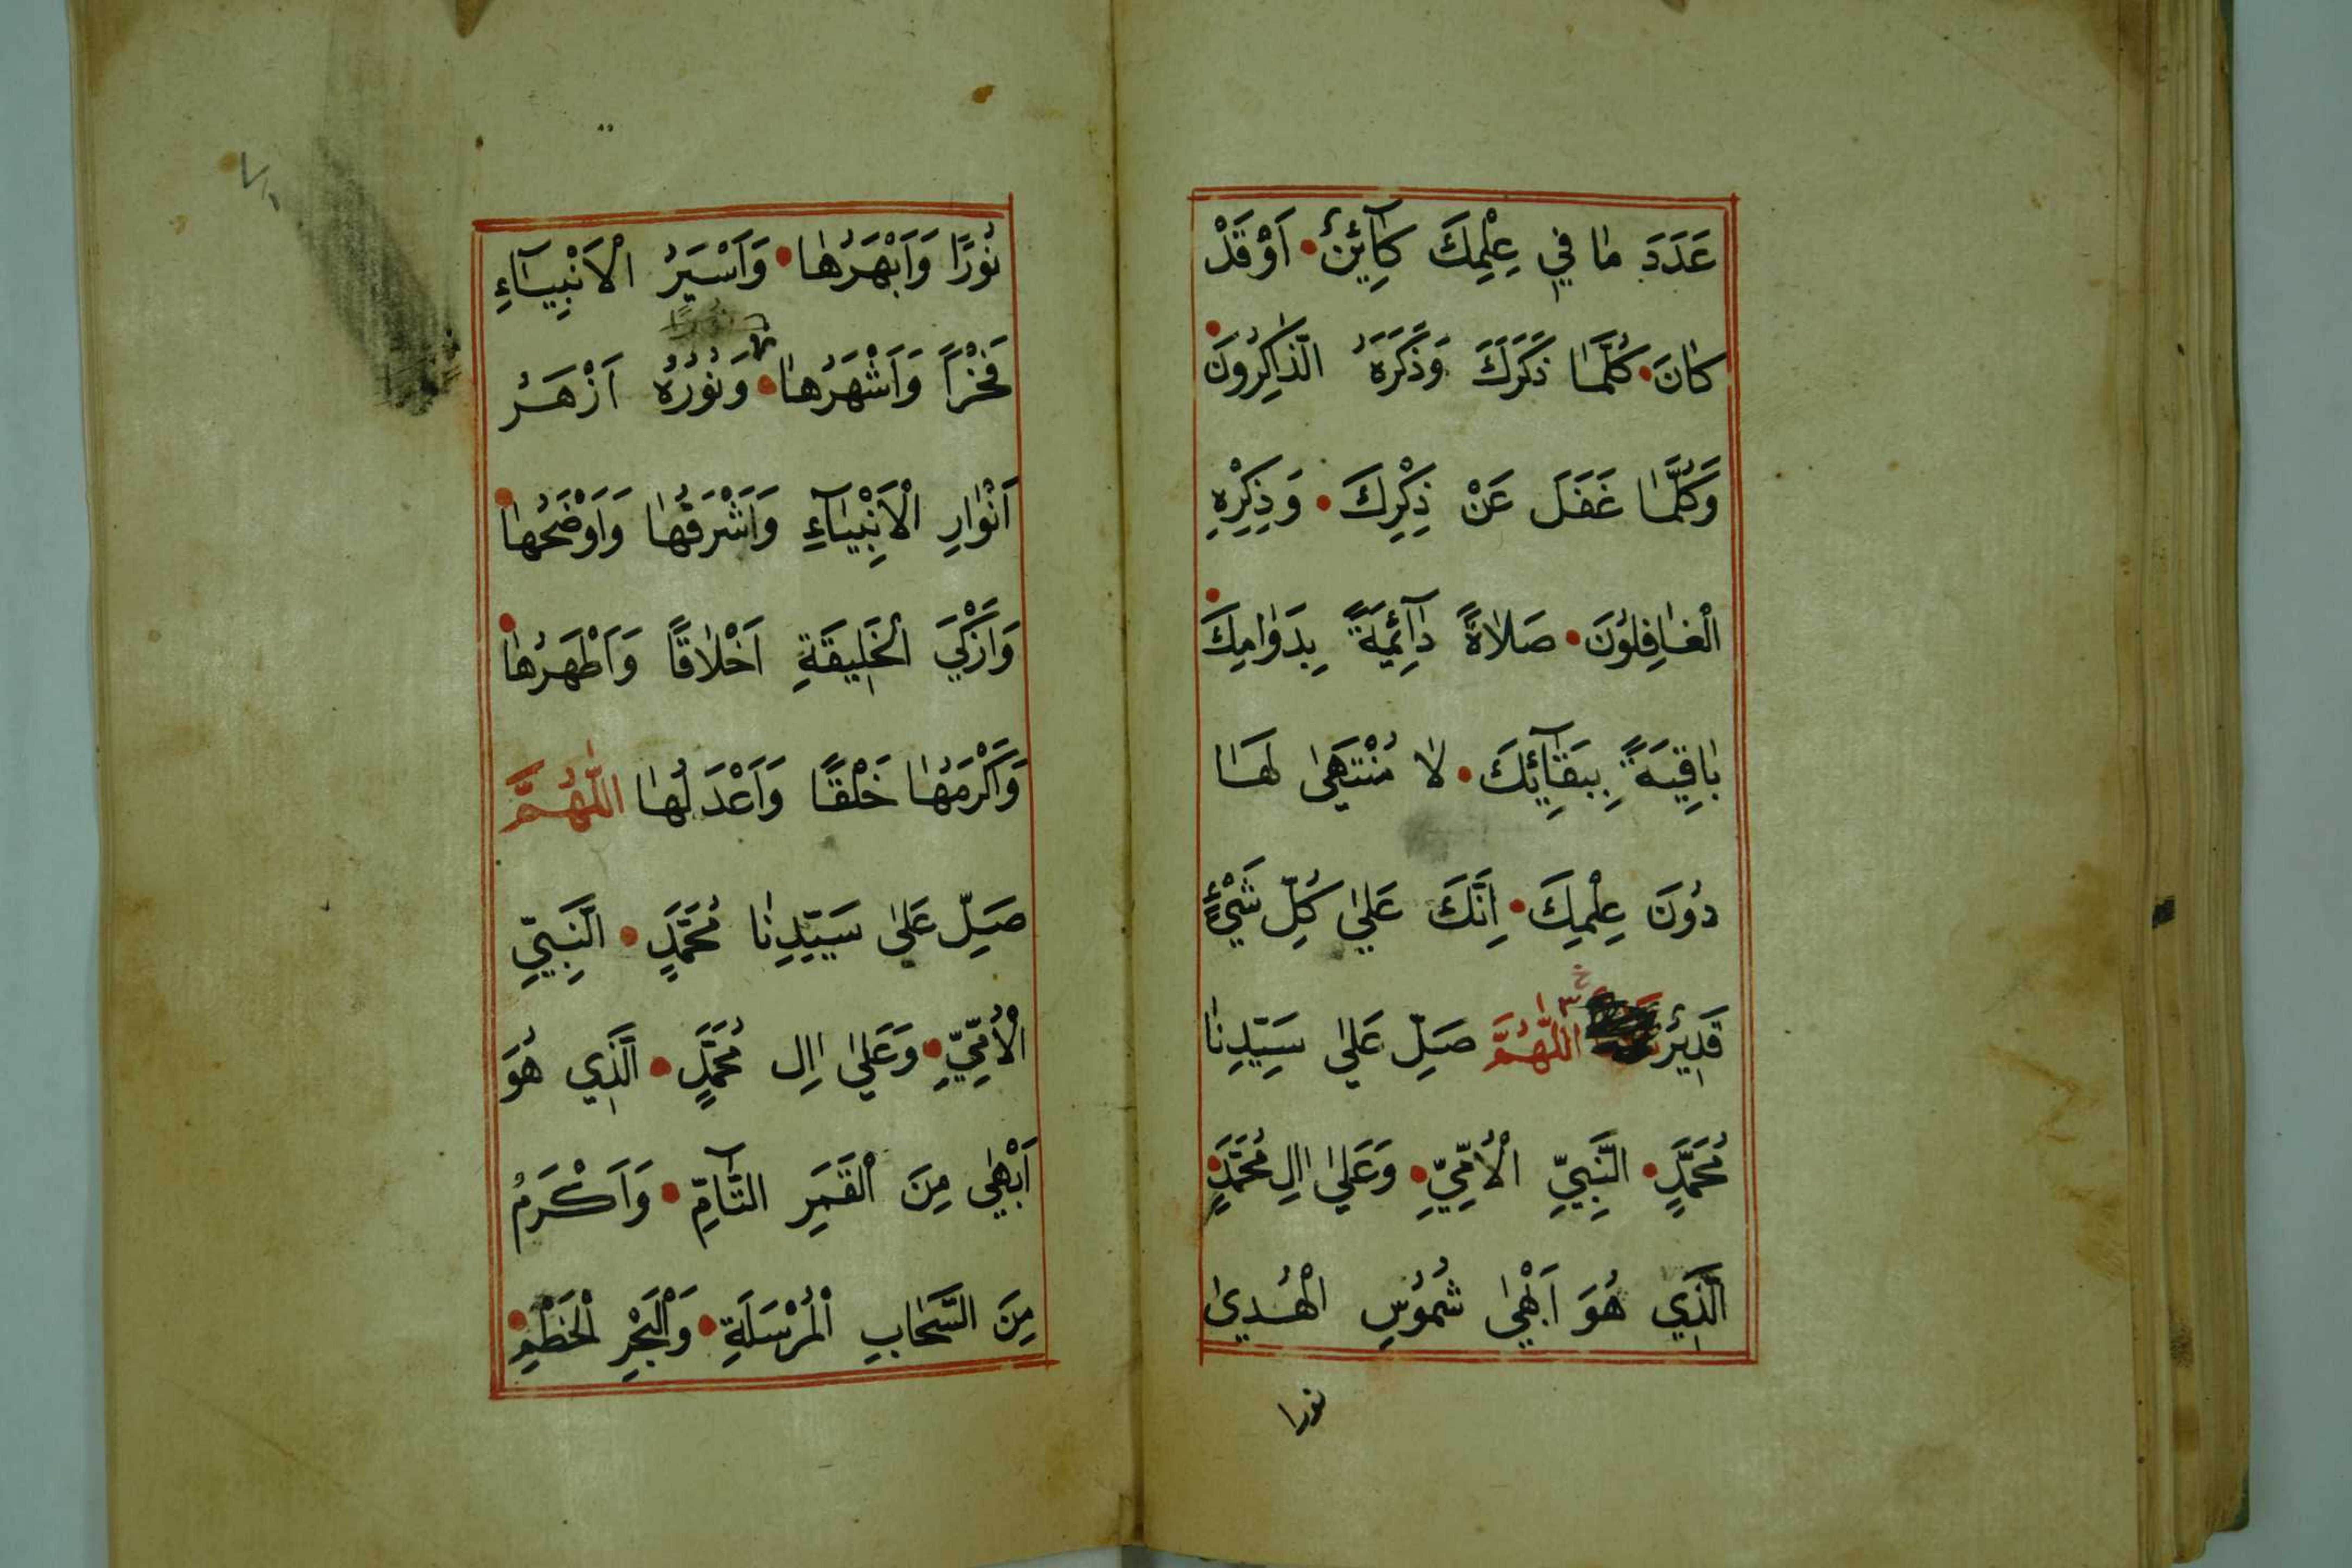 عَدَدَ مَا فِي عِلْمِكَ كَآئِنٌ • اَوْ قَدْ
كَانَ • كُلَّمَا ذَكَرَكَ وَذَكَرَهُ الذَّاكِرُونَ •
وَكُلَّمَا غَفَلَ عَنْ ذِكْرِكَ • وَذِكْرِهِ
الْغَافِلُونَ • صَلَاةً دَآئِمَةً بِدَوَامِكَ •
بَاقِيَةً بِبَقَآئِكَ • لَا مُنْتَهَى لَهَا
دُونَ عِلْمِكَ • اِنَّكَ عَلٰي كُلِّ شَيْءٍ
قَدِيرٌ اللّٰهُمَّ صَلِّ عَلٰي سَيِّدِنَا
مُحَمَّدٍ • النَّبِيِّ الْاُمِّيِّ • وَعَلٰي اٰلِ مُحَمَّدٍ •
الَّذِي هُوَ اَبْهٰي شُمُوسِ الْهُدٰي
نورا
نُورًا وَاَبْهَرُهَا • وَاَسْيَرُ الْاَنْبِيَآءِ
فَخْرًا وَاَشْهَرُهَا • وَنُورُهُ اَزْهَرُ
اَنْوَارِ الْاَنْبِيَآءِ وَاَشْرَقُهَا وَاَوْضَحُهَا •
وَاَزْكَي الْخَلِيقَةِ اَخْلَاقًا وَاَطْهَرُهَا •
وَاَكْرَمُهَا خَلْقًا وَاَعْدَلُهَا اللّٰهُمَّ
صَلِّ عَلٰى سَيِّدِنَا مُحَمَّدٍ • النَّبِيِّ
الْاُمِّيِّ • وَعَلٰي اٰلِ مُحَمَّدٍ • الَّذِي هُوَ
اَبْهٰي مِنَ الْقَمَرِ التَّآمِّ • وَاَكْرَمُ
مِنَ السَّحَابِ الْمُرْسَلَةِ • وَالْبَحْرِ الْخَطْمِ •